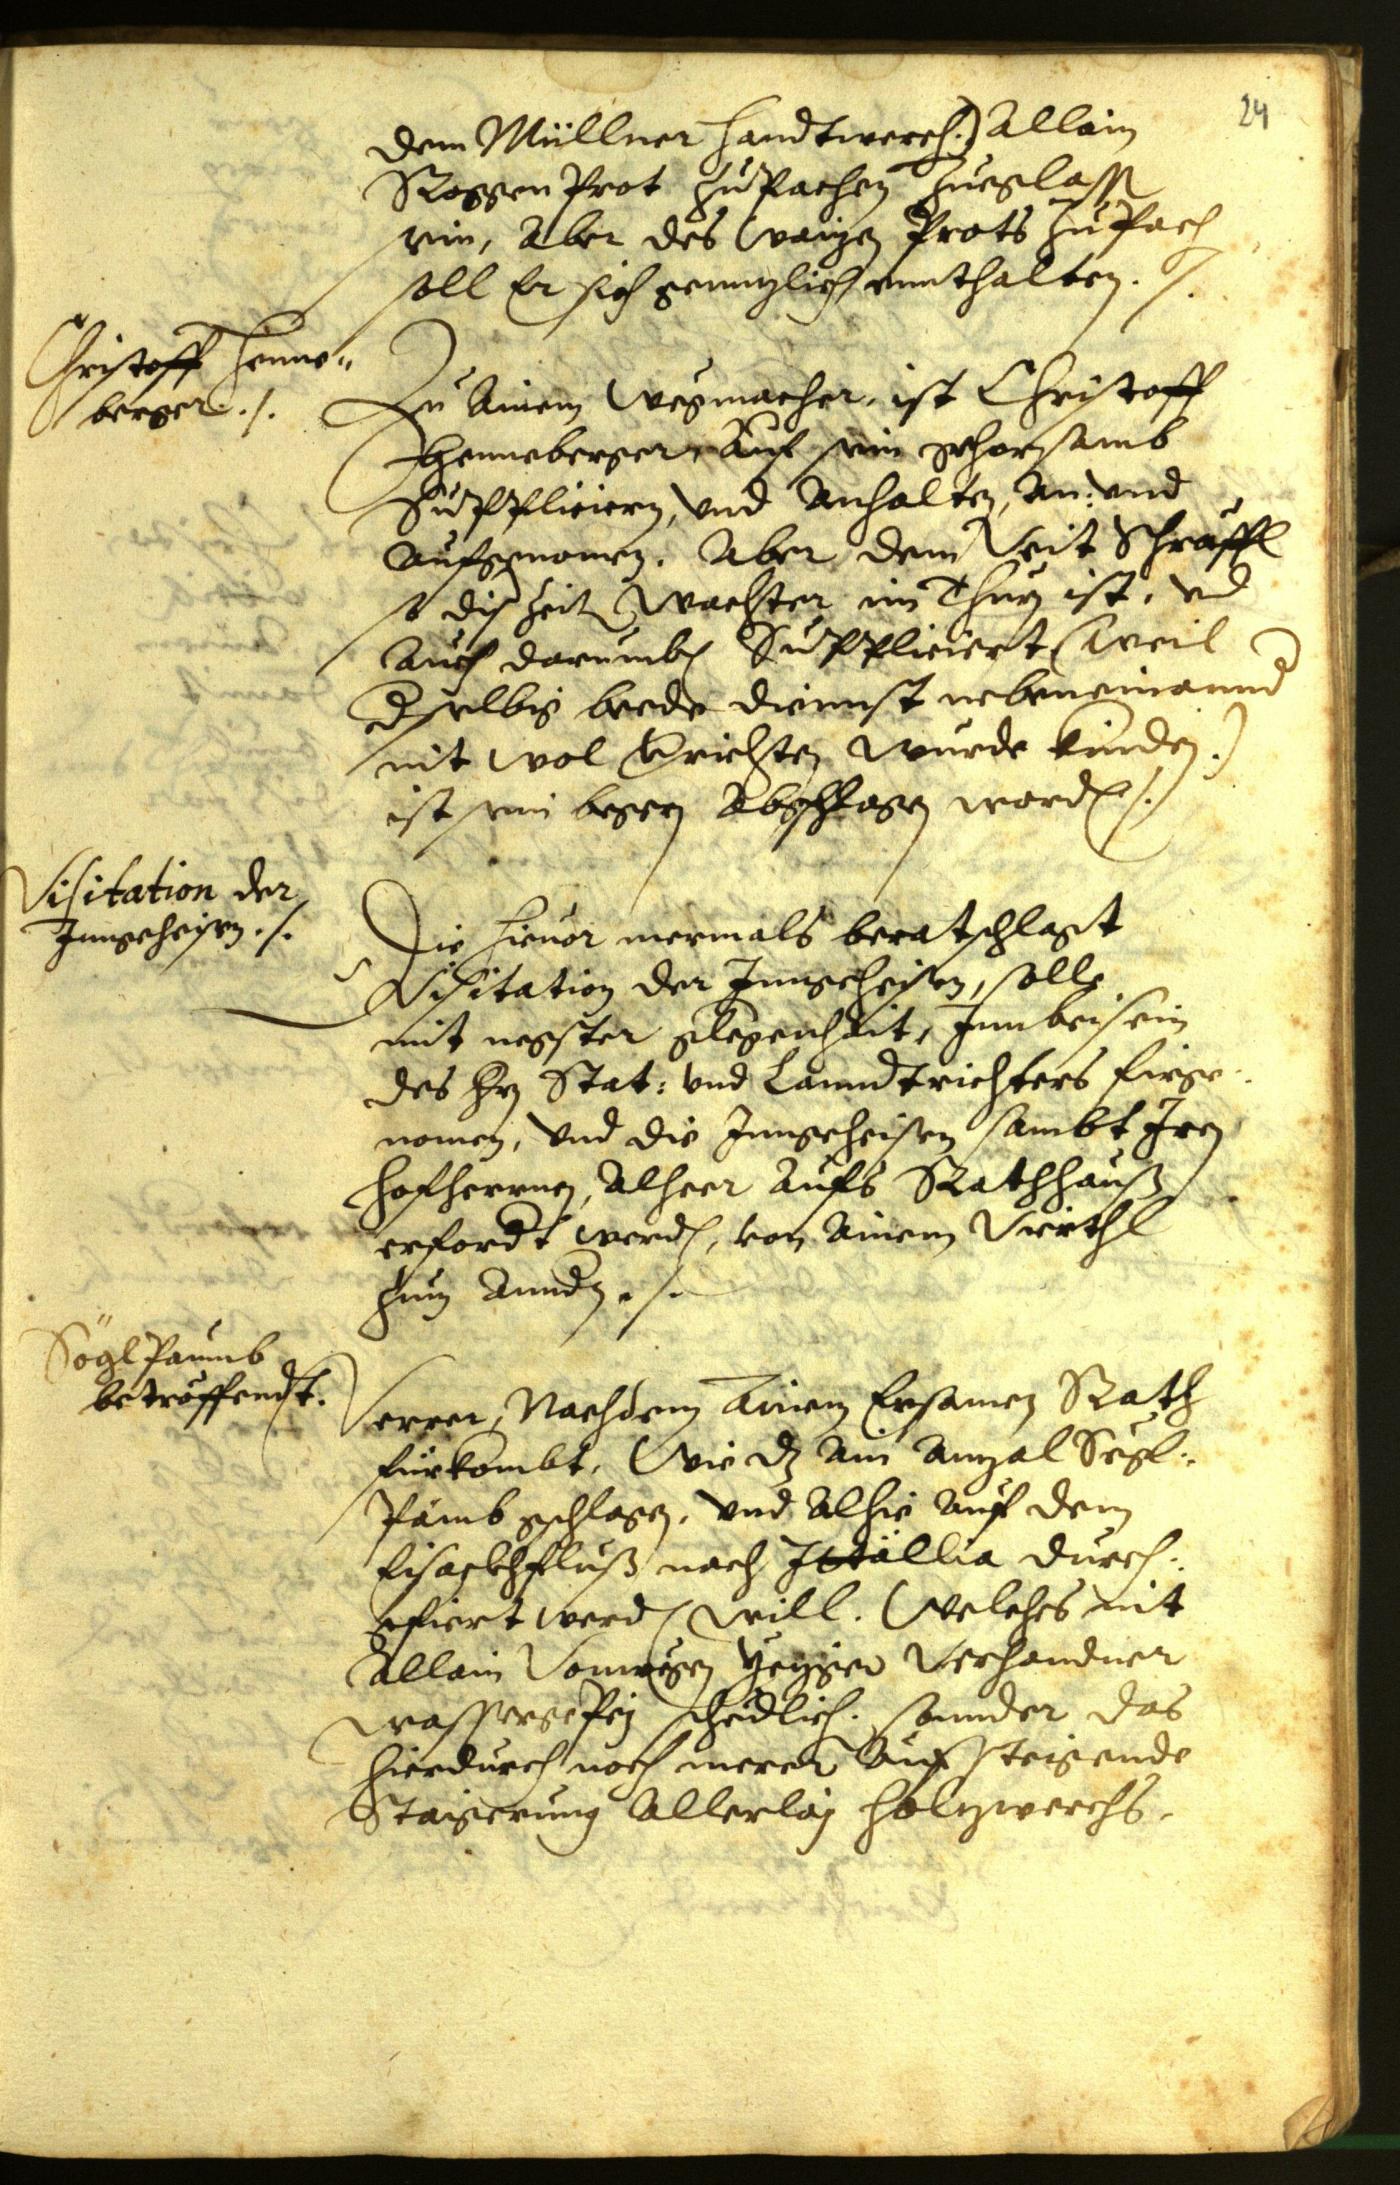 24
dem Müllner handtwerch.) Allain
Roggen Prot zu Pachen zueglassn
sein, Aber des Waizen Prots zu Pach
soll Er sich genntzlich ennthalten. ./.
Christoff Henne-
berger ./.
Zu Ainem Wegmacher, ist Christoff
Henneberger, Auf sein gehorsamb
Supplicieren, vnd Anhalten, An: vnd
aufgenomen. Aber dem Veit Schräffl
so diss Zeit Wachter im Thurn ist, vnd
Auch darumben Suppliciert (weil
derselbig beede diennst nebeneinannder
nit wol verrichten wurde kinden.)
ist sein begern Abgschlagen worden ./.
Visitation der
Inngeheisen ./.
Die hieuor mermals beratschlagt
Visitation der Inngeheisen, solle
mit negster glegenhait, Inn beisein
des Hrn Stat: vnd Lanndtrichters firge-
nomen, vnd die Inngeheisen sambt Iren
Hofherrnen, Alheer Aufs Rathhauß
erfordert werden, von Ainem Vierthl
zum Anndern ./.
Sögl Paumb
betröffendt.
Verrer, Nachdem Ainem Ersamen Rath
fürkombt, Wie dz Ain Anzal Segl-
Pämb gschlagen, vnd Alhie auf dem
Eisackhfluß nach Itällia durch-
gefiert werden will. Welches nit
Allain Vonwegen yeziger Verhandner
wassergepey schedlich, sonnder das
hierdurch noch merer Aufsteigende
Staigerung Allerlay Holzwerchs,